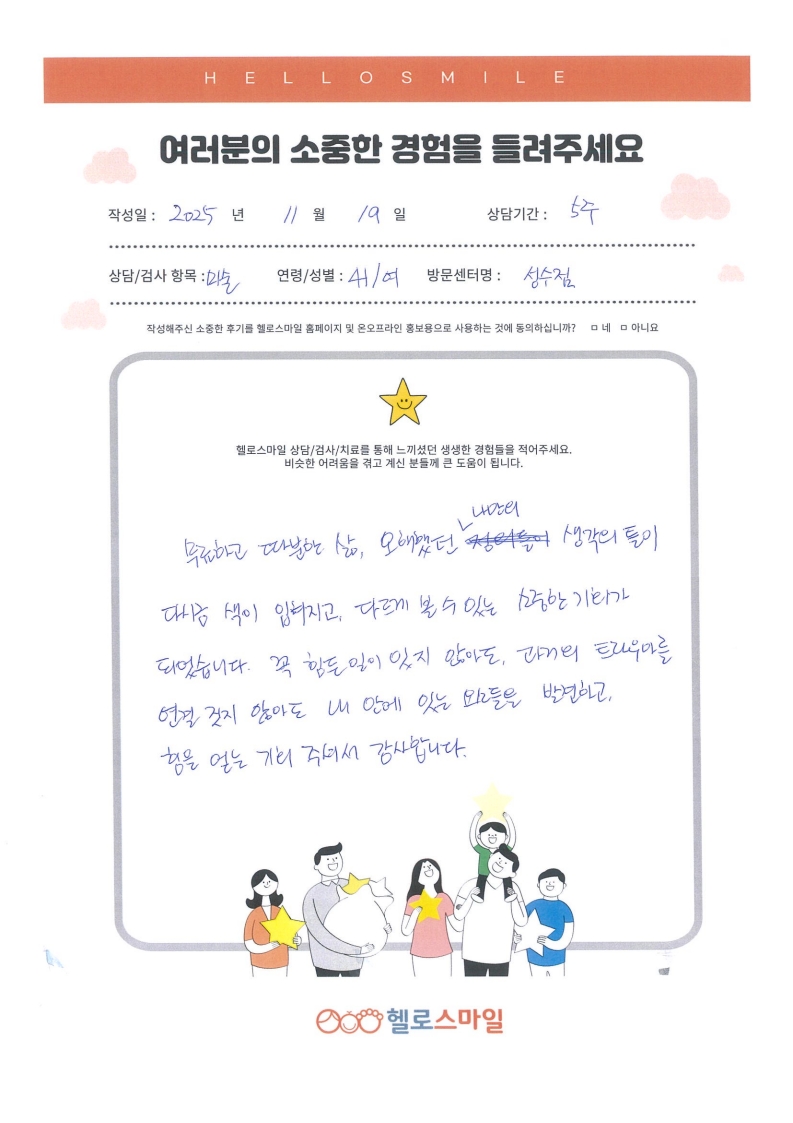 HELLOSMILE
여러분의 소중한 경험을 들려주세요
작성일 : 2025 년 11 월 19 일 상담기간 : 5주
상담/검사 항목 : 미술 연령/성별 : 41/여 방문센터명 : 성수점
작성해주신 소중한 후기를 헬로스마일 홈페이지 및 온오프라인 홍보용으로 사용하는 것에 동의하십니까? ㅁ 네 ㅁ 아니요
헬로스마일 상담/검사/치료를 통해 느끼셨던 생생한 경험들을 적어주세요.
비슷한 어려움을 겪고 계신 분들께 큰 도움이 됩니다.
내안의
무료하고 따분한 삶, 오해했던 생각의 틀이
다시금 색이 입혀지고, 다르게 볼 수 있는 소중한 기회가
되었습니다. 꼭 힘든일이 있지 않아도, 과거의 트라우마를
연결 짓지 않아도 내 안에 있는 것들을 발견하고,
힘을 얻는 기회 주셔서 감사합니다.
헬로스마일